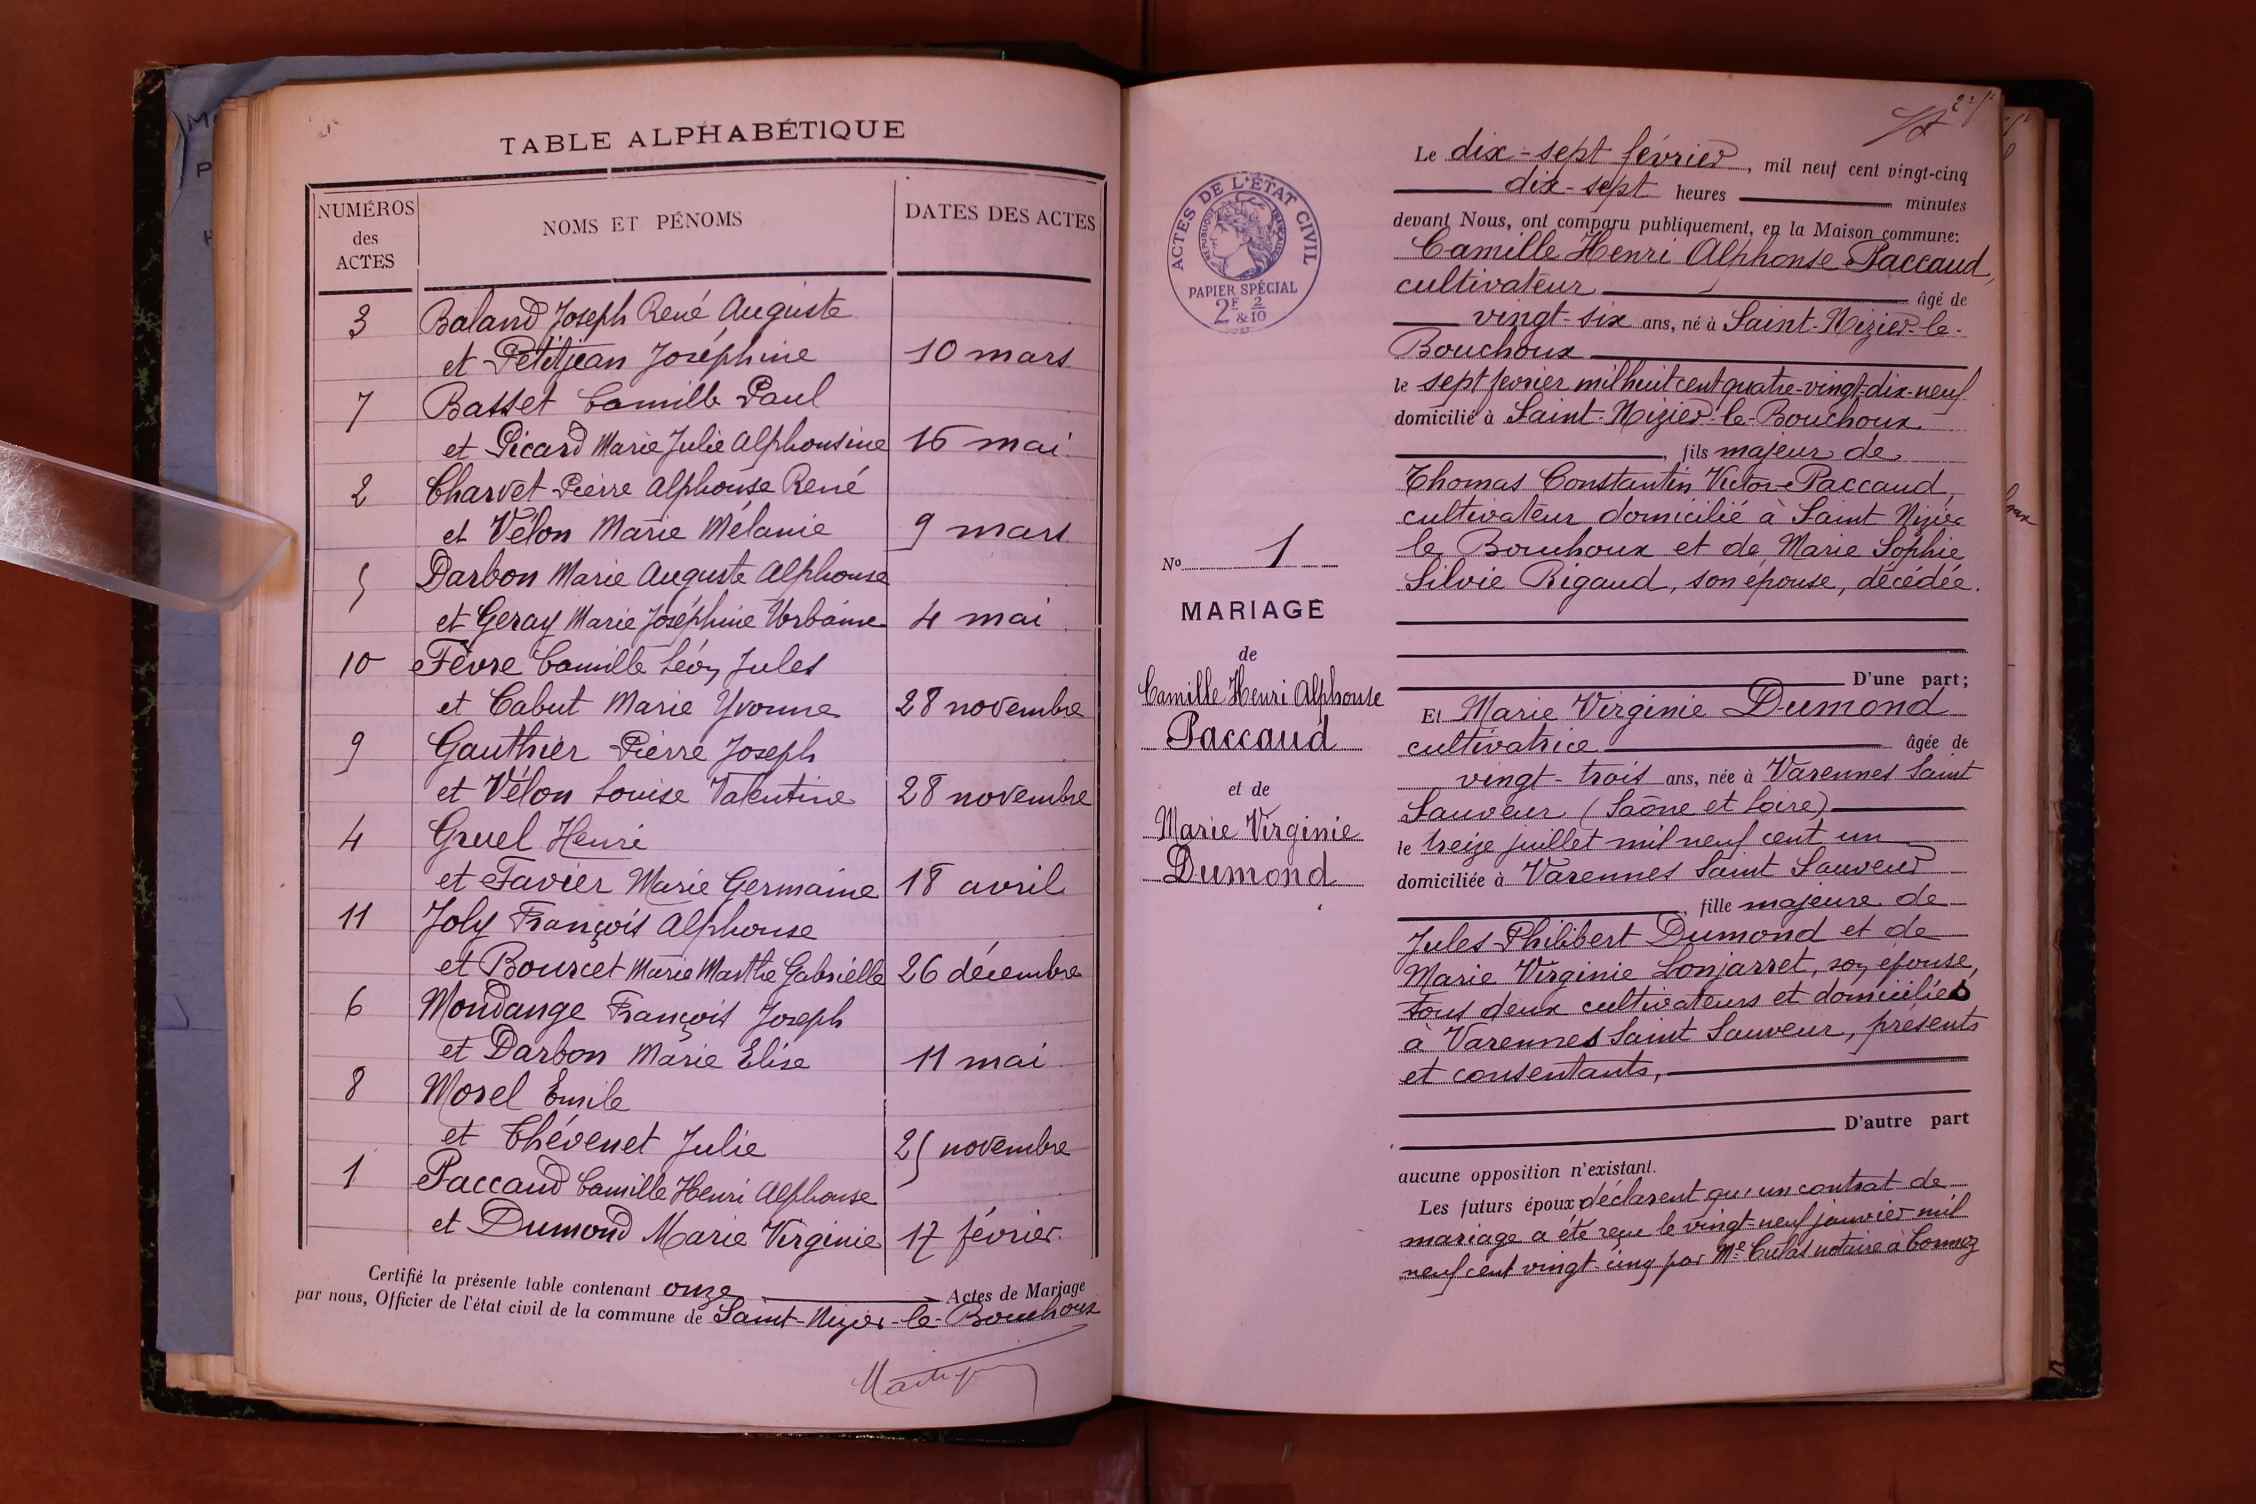 TABLE ALPHABÉTIQUE
NUMÉROS des ACTES
NOMS ET PÉNOMS
DATES DES ACTES
3 Baland Joseph René Auguste
et Petitjean Joséphine 10 mars
7 Basset Camille Paul
et Picard Marie Julie Alphonsine 16 mai
2 Charvet Pierre Alphonse René
et Vélon Marie Mélanie 9 mars
5 Darbon Marie Auguste Alphonse
et Geray Marie Joséphine Urbaine 4 mai
10 Fèvre Camille Léon Jules
et Cabut Marie Yvonne 28 novembre
9 Gauthier Pierre Joseph
et Vélon Louise Valentine 28 novembre
4 Gruel Henri
et Favier Marie Germaine 18 avril
11 Joly François Alphonse
et Bourcet Marie Marthe Gabrielle 26 décembre
6 Mondange François Joseph
et Darbon Marie Elise 11 mai
8 Morel Emile
et Thévenet Julie 25 novembre
1 Paccaud Camille Henri Alphonse
et Dumond Marie Virginie 17 février.
Certifié la présente table contenant onze Actes de Mariage
par nous, Officier de l'état civil de la commune de Saint-Nizier-le-Bouchoux
ACTES DE L'ÉTAT CIVIL
RÉPUBLIQUE FRANÇAISE
PAPIER SPÉCIAL
2F & 2/10
No 1
MARIAGE
de
Camille Henri Alphonse
Paccaud
et de
Marie Virginie
Dumond
Le dix-sept février, mil neuf cent vingt-cinq
dix-sept heures minutes
devant Nous, ont comparu publiquement, en la Maison commune:
Camille Henri Alphonse Paccaud,
cultivateur âgé de
vingt-six ans, né à Saint-Nizier-le-
Bouchoux
le sept fevrier mil huit cent quatre-vingt-dix-neuf
domicilié à Saint-Nizier-le-Bouchoux
, fils majeur de
Thomas Constantin Victor Paccaud,
cultivateur domicilié à Saint Nizier
le Bouchoux et de Marie Sophie
Silvie Rigaud, son épouse, décédée.
D'une part;
Et Marie Virginie Dumond
cultivatrice âgée de
vingt-trois ans, née à Varennes Saint
Sauveur (Saône et Loire)
le treize juillet mil neuf cent un
domiciliée à Varennes Saint Sauveur
, fille majeure de
Jules Philibert Dumond et de
Marie Virginie Lonjarret, son épouse,
tous deux cultivateurs et domiciliés
à Varennes Saint Sauveur, présents
et consentants,
D'autre part
aucune opposition n'existant.
Les futurs époux déclarent qu'un contrat de
mariage a été reçu le vingt-neuf janvier mil
neuf cent vingt-cinq par Me Culas notaire à Cormoz